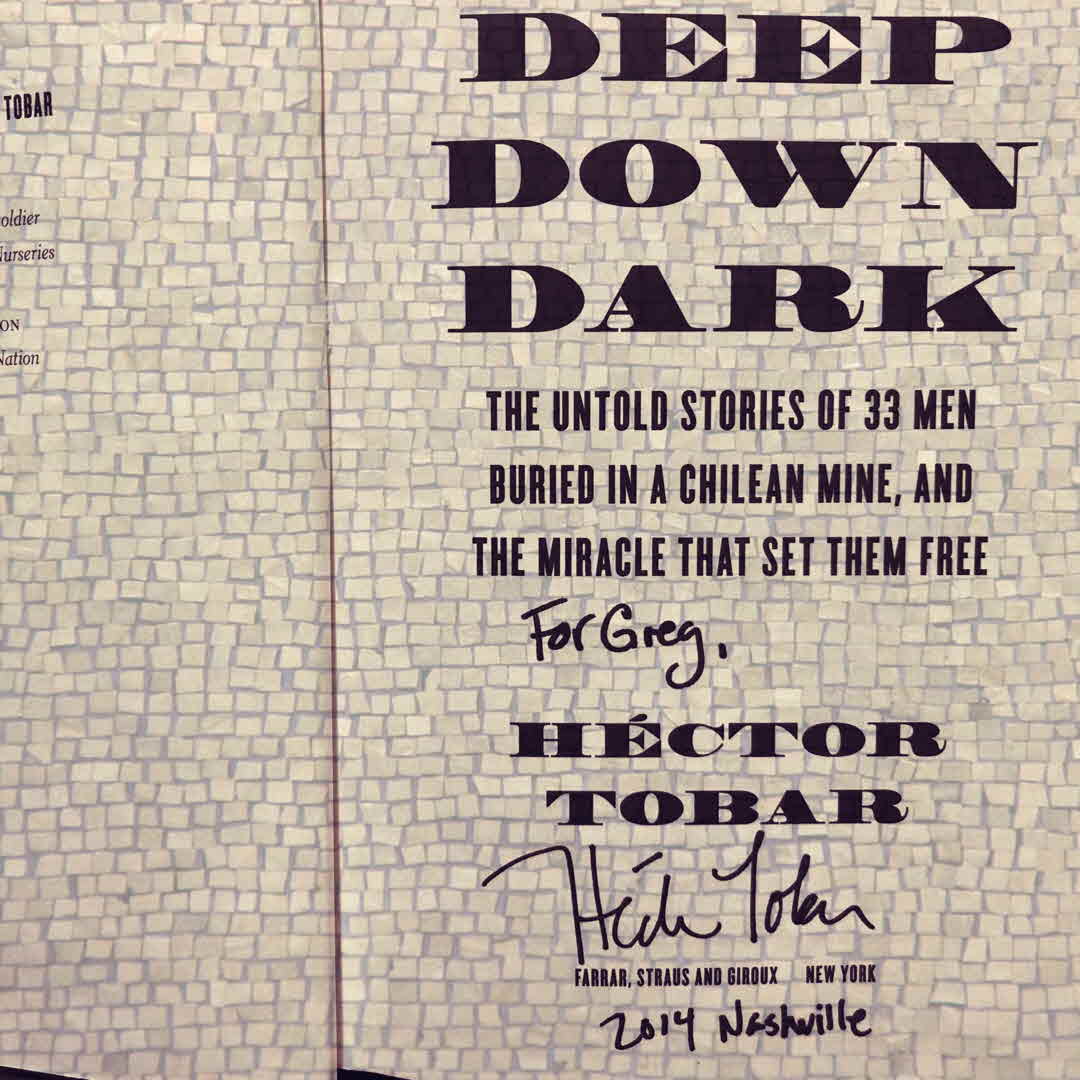 TOBAR
oldier
Nurseries
ON
Nation
DEEP
DOWN
DARK
THE UNTOLD STORIES OF 33 MEN
BURIED IN A CHILEAN MINE, AND
THE MIRACLE THAT SET THEM FREE
For Greg,
HÉCTOR
TOBAR
Héctor Tobar
FARRAR, STRAUS AND GIROUX NEW YORK
2014 Nashville